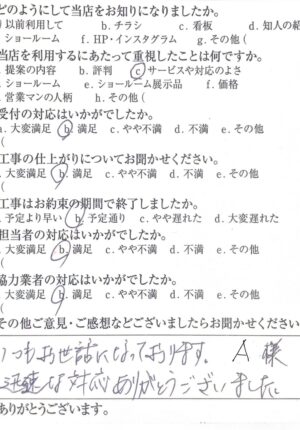 どのようにして当店をお知りになりましたか。
以前利用して b. チラシ c. 看板 d. 知人の紹
ショールーム f. HP・インスタグラム g. その他（
当店を利用するにあたって重視したことは何ですか。
. 提案の内容 b. 評判 c サービスや対応のよさ
. ショールーム e. ショールーム展示品 f. 価格
. 営業マンの人柄 h. その他（
受付の対応はいかがでしたか。
a. 大変満足 b 満足 c. やや不満 d. 不満 e. その他
（
工事の仕上がりについてお聞かせください。
. 大変満足 b. 満足 c. やや不満 d. 不満 e. その他
（
工事はお約束の期間で終了しましたか。
. 予定より早い b. 予定通り c. やや遅れた d. 大変遅れた
（
担当者の対応はいかがでしたか。
. 大変満足 b. 満足 c. やや不満 d. 不満 e. その他
（
協力業者の対応はいかがでしたか。
. 大変満足 b. 満足 c. やや不満 d. 不満 e. その他
（
その他ご意見・ご感想などございましたらお聞かせください
いつもお世話になっております。 A 様
迅速な対応ありがとうございました。
ありがとうございます。